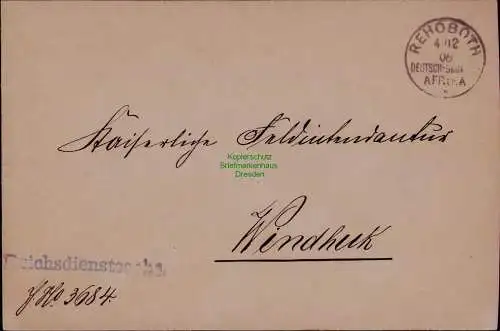 REHOBOTH
4/12
06
DEUTSCH-SÜDW
AFRIKA
Kaiserliche Feldintendantur
Kopierschutz
Briefmarkenhaus
Dresden
Windhuk
Reichsdienstsache
J. No 3684.